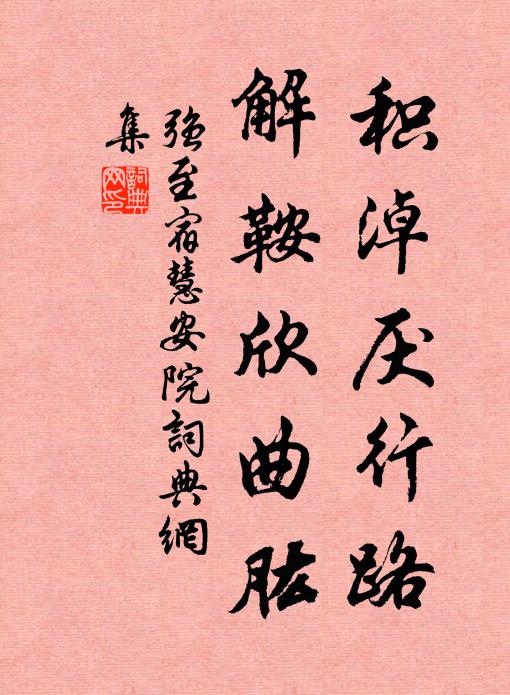 积淖厌行路
解鞍欣曲肱
强至宿慧安院詞典網
集
詞典网印